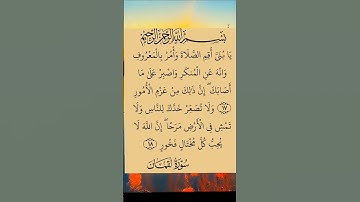 بِسْمِ اللَّهِ الرَّحْمَٰنِ الرَّحِيمِ
يَا بُنَيَّ أَقِمِ الصَّلَاةَ وَأْمُرْ بِالْمَعْرُوفِ
وَانْهَ عَنِ الْمُنكَرِ وَاصْبِرْ عَلَىٰ مَا
أَصَابَكَ ۖ إِنَّ ذَٰلِكَ مِنْ عَزْمِ الْأُمُورِ
﴿١٧﴾ وَلَا تُصَعِّرْ خَدَّكَ لِلنَّاسِ وَلَا
تَمْشِ فِي الْأَرْضِ مَرَحًا ۖ إِنَّ اللَّهَ لَا
يُحِبُّ كُلَّ مُخْتَالٍ فَخُورٍ ﴿١٨﴾
سُورَةُ لُقْمَان